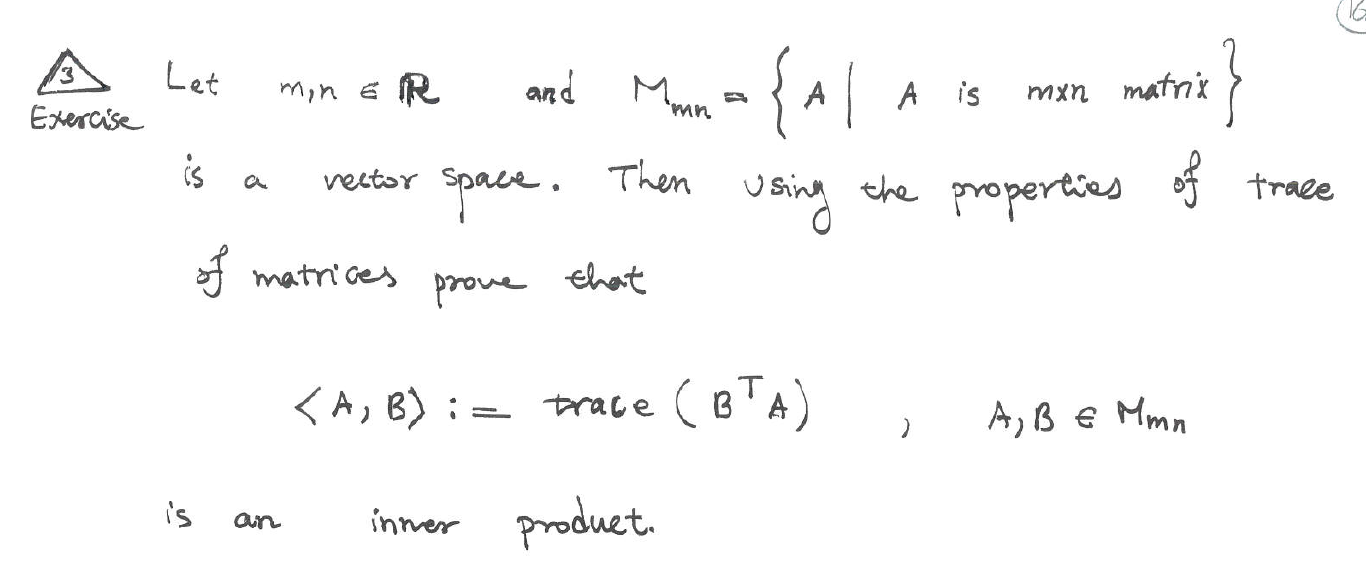 16
3 Let m,n ∈ ℝ and Mmn = { A | A is mxn matrix }
Exercise
is a vector space. Then using the properties of trace
of matrices prove that
<A, B> := trace (BᵀA) , A,B ∈ Mmn
is an inner product.